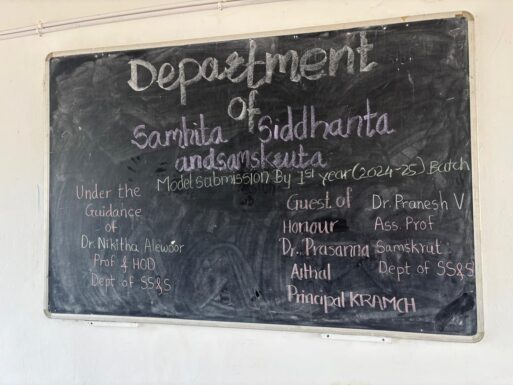 Department
of
Samhita Siddhanta
andsamskruta
Model submission By 1st year (2024-25) Batch
Under the
Guidance
of
Dr. Nikitha Alewoor
Prof & HOD
Dept of SS&S
Guest of
Honour
Dr. Prasanna
Aithal
Principal KRAMCH
Dr. Pranesh V
Ass. Prof
Samskrut
Dept of SS&S